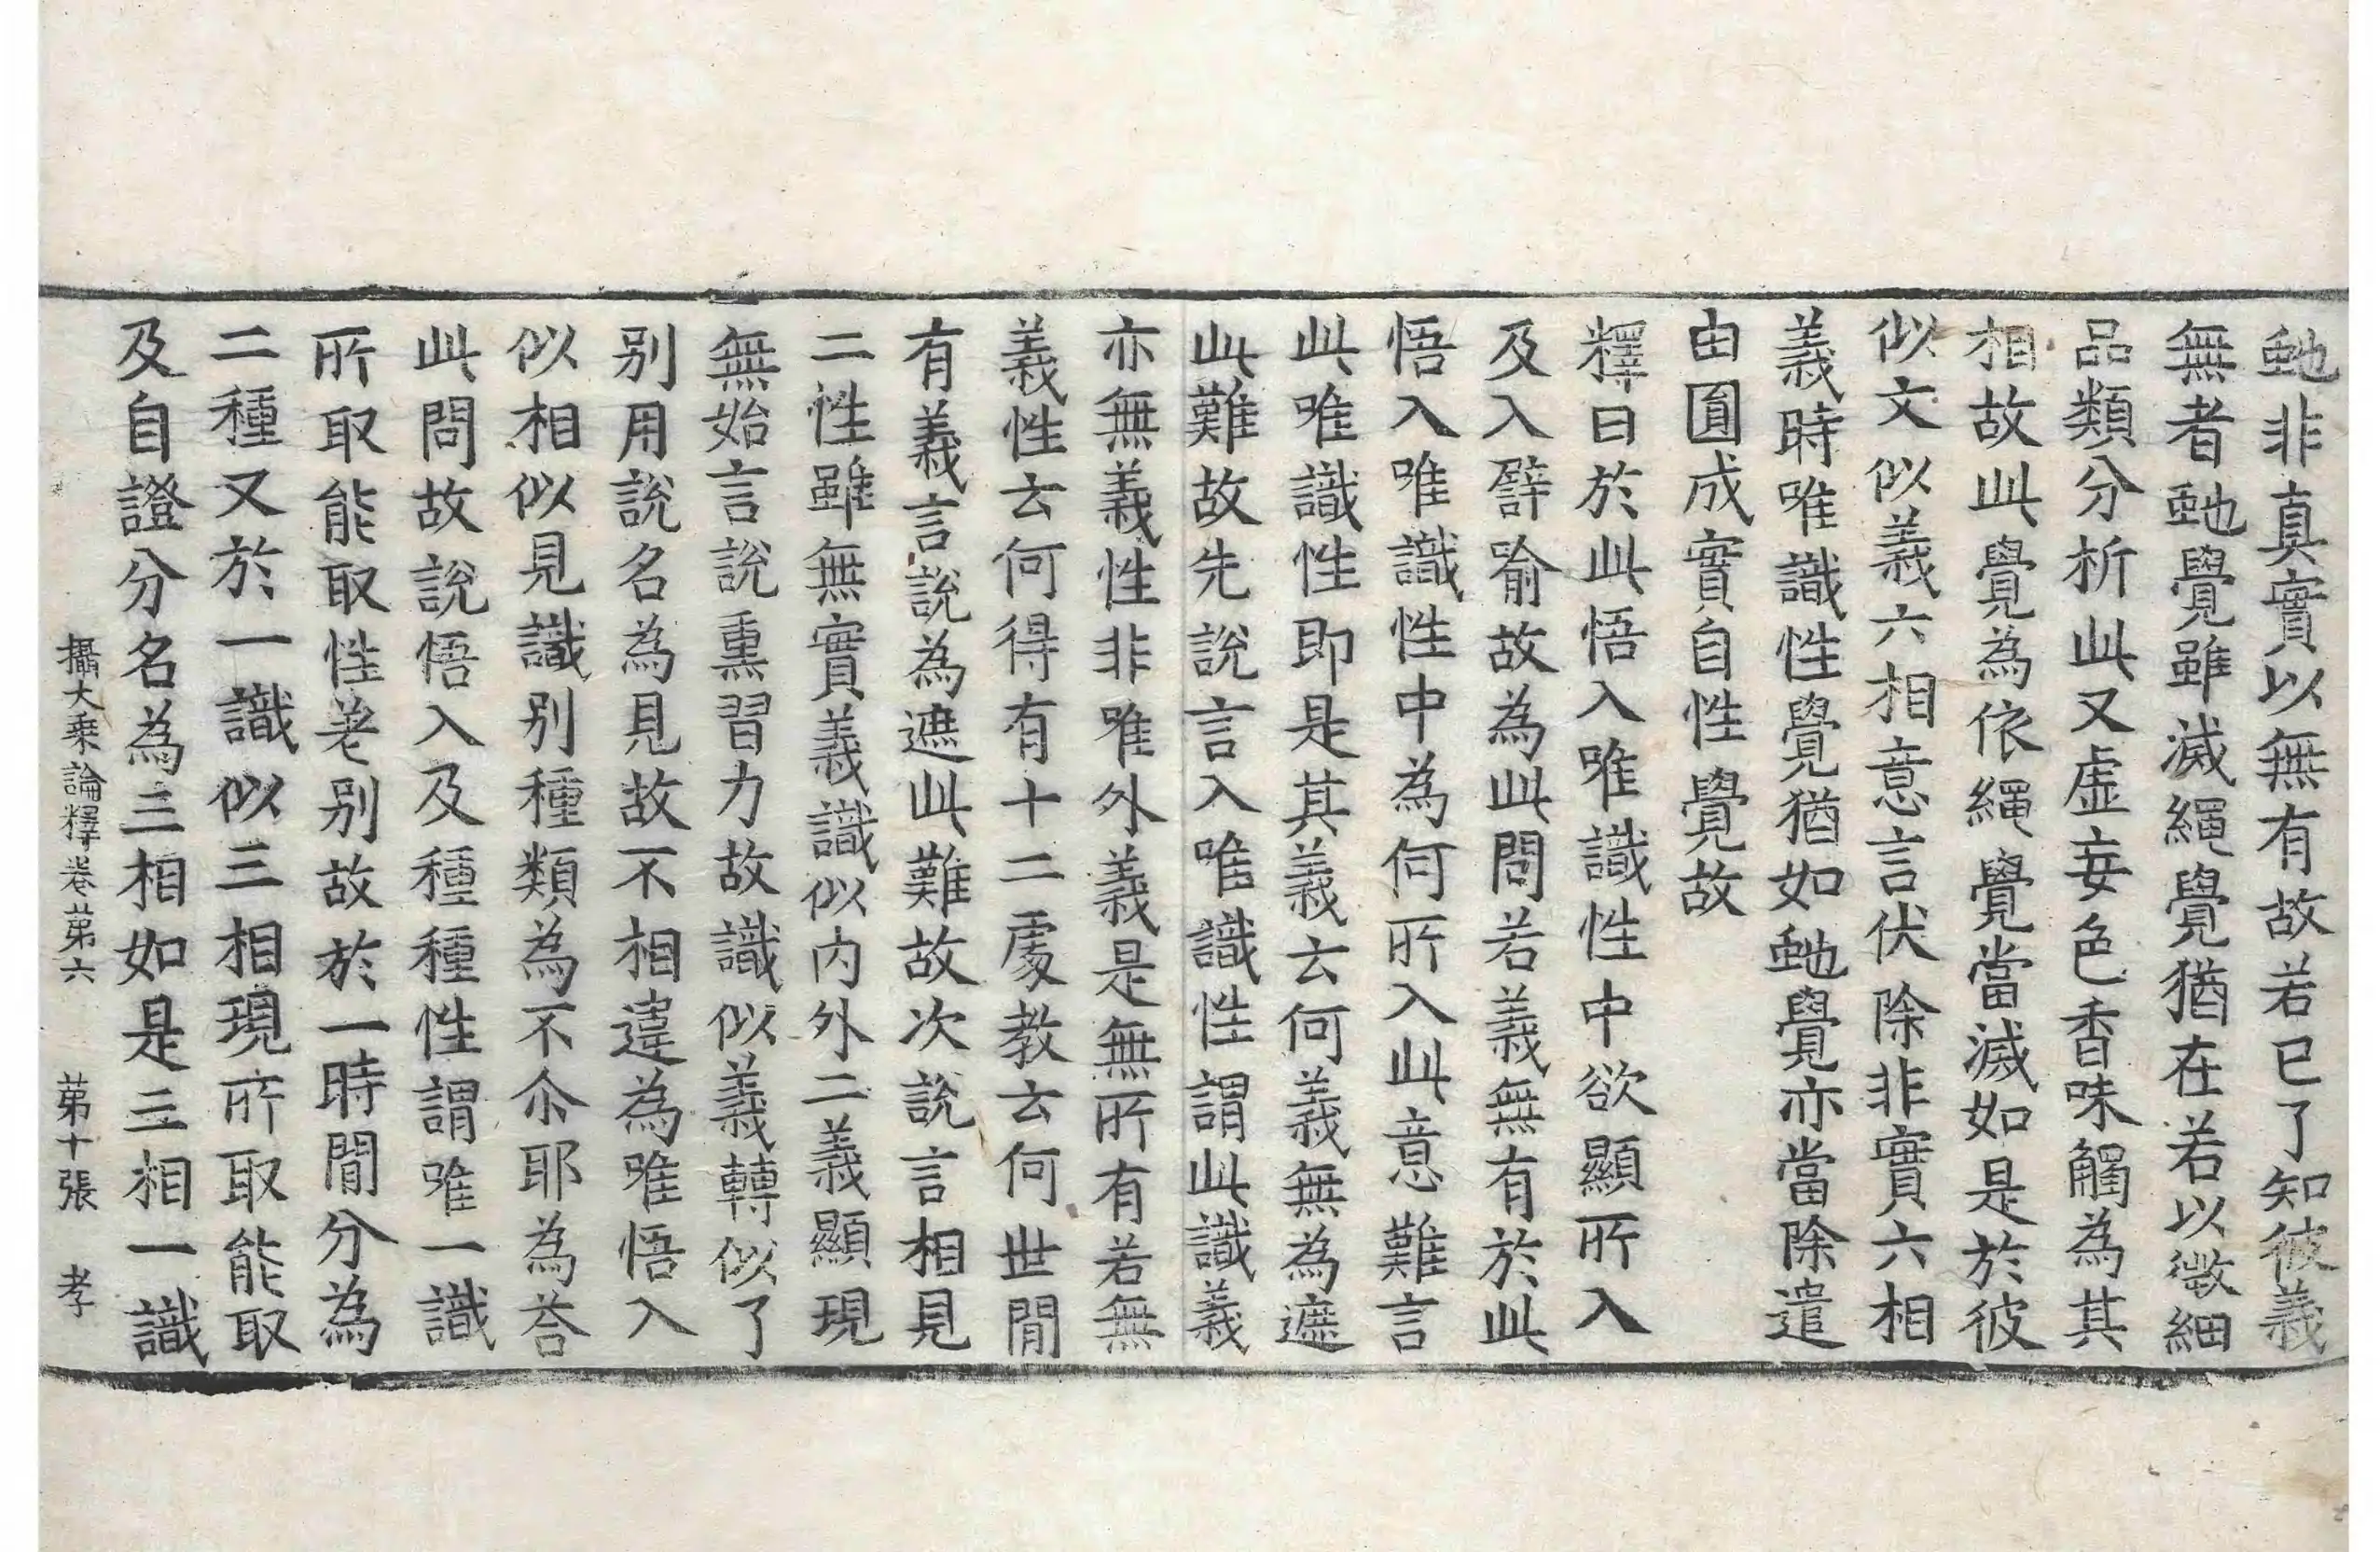 虵非真實以無有故若已了知彼義
無者虵覺雖滅繩覺猶在若以微細
品類分析此又虛妄色香味觸為其
相故此覺為依繩覺當滅如是於彼
似文似義六相意言伏除非實六相
義時唯識性覺猶如虵覺亦當除遣
由圓成實自性覺故
釋曰於此悟入唯識性中欲顯所入
及入譬喻故為此問若義無有於此
悟入唯識性中為何所入此意難言
此唯識性即是其義云何義無為遮
此難故先說言入唯識性謂此識義
亦無義性非唯外義是無所有若無
義性云何得有十二處教云何世間
有義言說為遮此難故次說言相見
二性雖無實義識似內外二義顯現
無始言說熏習力故識似義轉似了
別用說名為見故不相違為唯悟入
似相似見識別種類為不尒耶為荅
此問故說悟入及種種性謂唯一識
所取能取性差別故於一時間分為
二種又於一識似三相現所取能取
及自證分名為三相如是三相一識
攝大乘論釋卷第六 第十張 孝